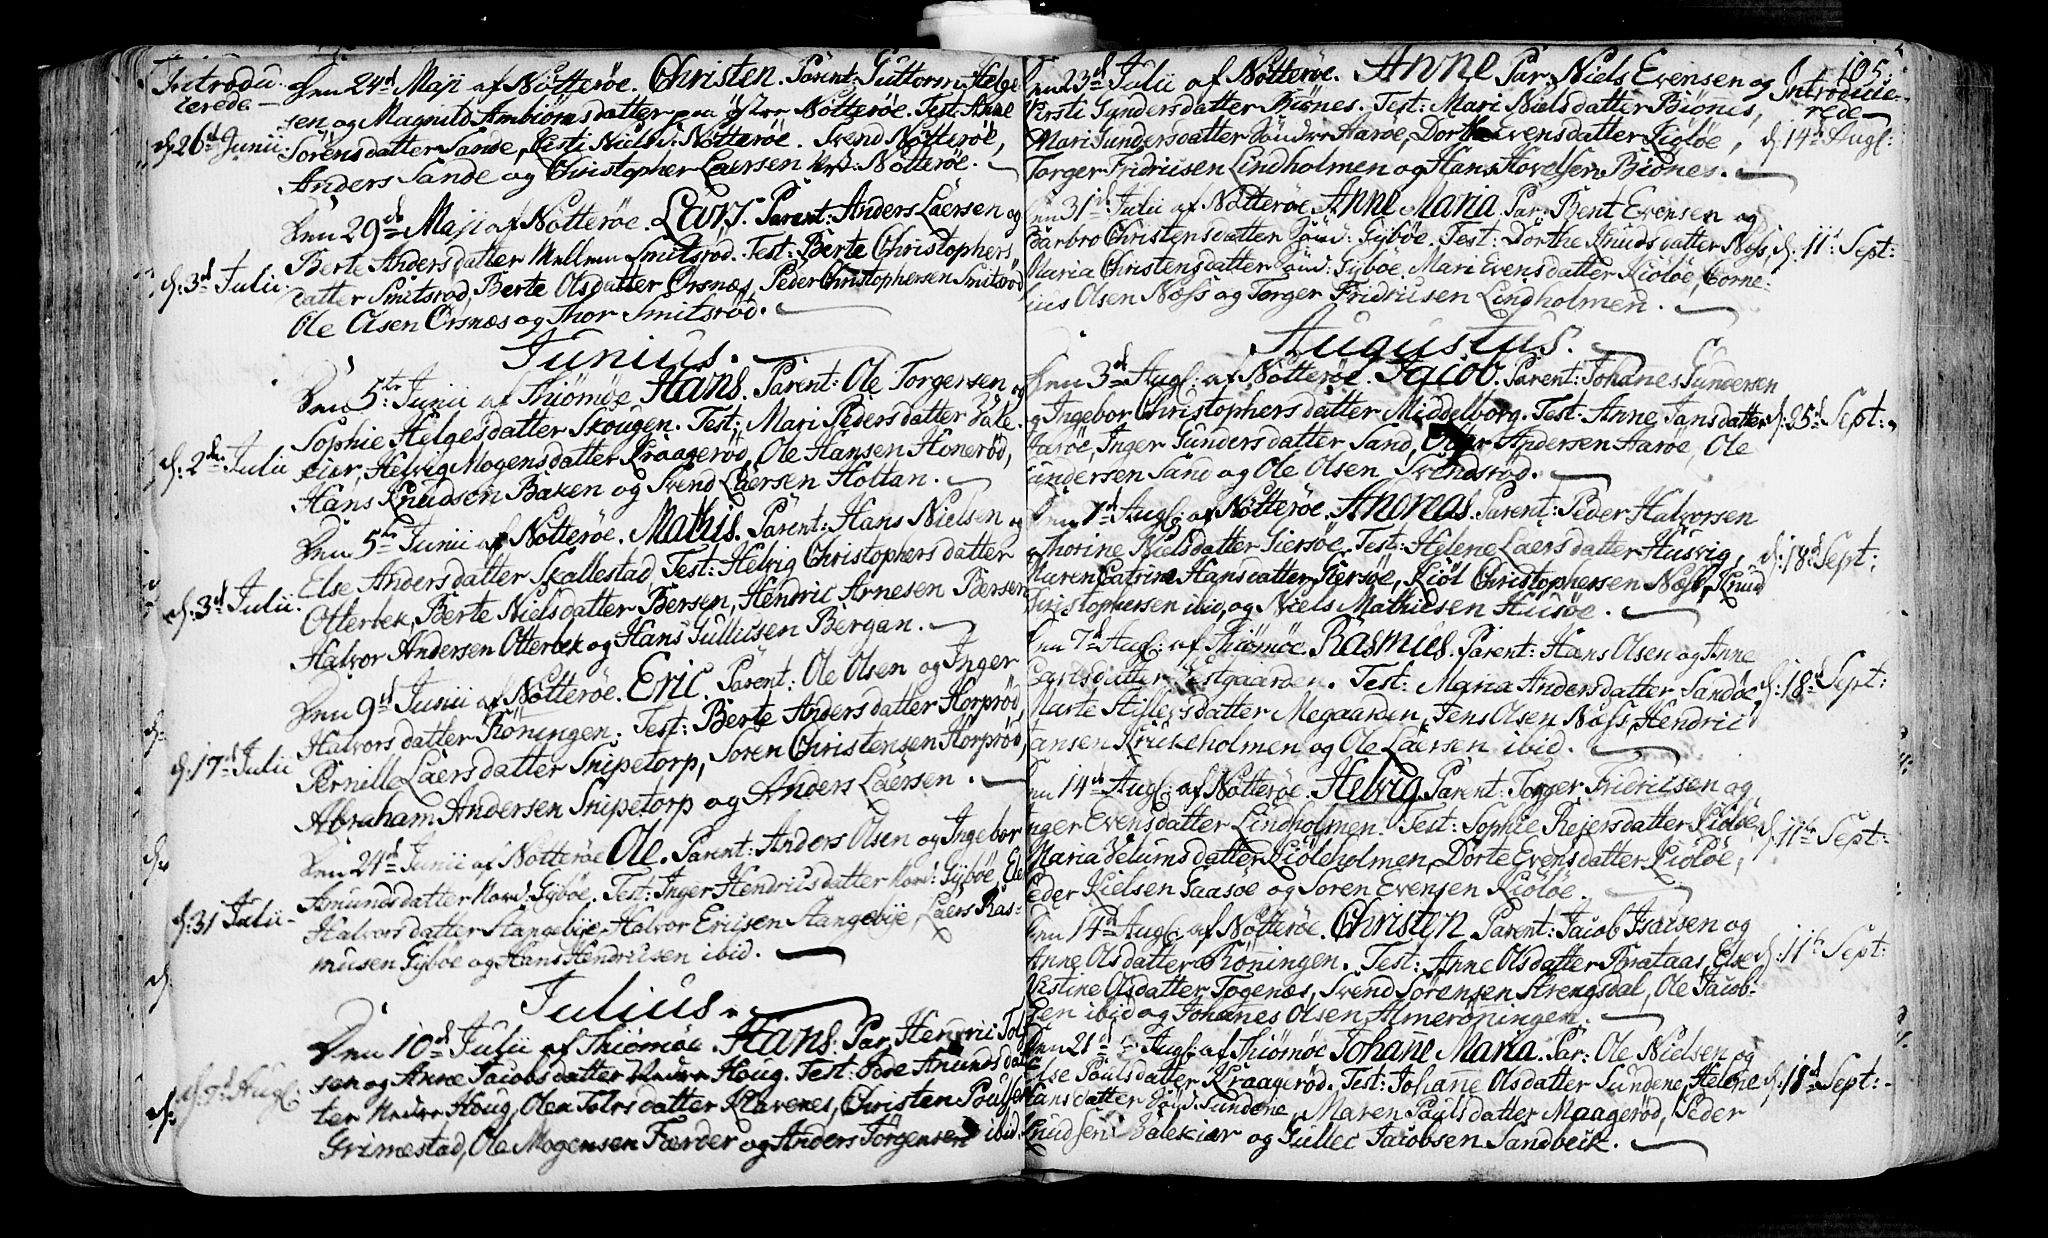 Introdu-
cerede
Den 24d Maji af Nötteröe. Christen. Parent: Guttorm Helge
sen og Magnild Ambiönsdatter paa Östre Nötteröe. Test: Anne
d: 26d Junii.
Sörensdatter Sande, Kirsti Nielsd: Nötteröe. Svend Nötteröe,
Anders Sande og Christopher Laersen Nötteröe.
Den 29d Maji af Nötteröe. Lars. Parent: Anders Laersen og
Berte Andersdatter Mellem Smitsröd. Test: Berte Christophers
d: 3d Julii.
datter Smitsröd, Berte Olsdatter Orsnæs, Peder Christophersen Smitsröd,
Ole Olsen Orsnæs og Thor Smitsröd.
Junius.
Den 5te Junii af Thiömöe Hans. Parent: Ole Torgersen og
Sophie Helgesdatter Skougen. Test: Mari Pedersdatter Vale-
d: 2den Julii
kier, Helvig Mogensdatter Kraageröd, Ole Hansen Honeröd,
Hans Knudsen Baken og Svend Laersen Holtan.
Den 5te Junii af Nötteröe. Mathis. Parent: Hans Nielsen og
Else Andersdatter Skallestad, Test: Helvig Christophersdatter
d: 3d Julii.
Otterbek, Berte Nielsdatter Bersen, Hendric Arnesen Bersen
Halvor Andersen Otterbek og Hans Gullicsen Bergan.
Den 9d Junii af Nötteröe. Eric. Parent: Ole Olsen og Inger
Halvorsdatter Röningen. Test: Berte Andersdatter Horpröd,
d: 17d Julii
Pernille Laersdatter Snipetorp, Soren Christensen Horpröd,
Abraham Andersen Snipetorp og Anders Laersen.
Den 24d Junii af Nötteröe Ole. Parent: Anders Olsen og Ingebor
Amundsdatter Nord: Gyböe. Test: Inger Hendricsdatter Nord: Gyböe, Elen
d: 31 Julii
Halvorsdatter Stangebÿe, Halvor Ericsen Stangebÿe, Laers Ras-
musen Gyböe og Hans Hendricsen ibid.
Julius.
Den 10d Julii af Thiömöe. Hans. Par: Hendric Tols
sen og Anne Jacobsdatter Houg. Test: Amundsdat
d: 7d Augl:
ter Houg, Olea Tolvsdatter Klavenes, Christen Poulsen
Grimestad, Ole Mogensen Færder og Anders Torgersen ibid.
105.
Introduce-
rede
Den 23d Julii af Nötteröe. Anne Par: Niels Evensen og
Kirsti Gundersdatter Biönes. Test: Mari Nielsdatter Biönes,
Mari Gundersdatter Söndre Aaröe, Dorthe Evensdatter Kiölöe,
d: 14d Augl:
Torger Fridricsen Lindholmen og Hans Hovelsen Biönes.
Den 31d Julii af Nötteröe Anne Maria. Par: Bent Evensen og
Barbro Christensdatter Sönd: Gyböe. Test: Dorthe Knudsdatter Næss
d: 11d Sept:
Maria Christensdatter Sönd: Gyböe, Mari Evensdatter Kiölöe, Corne-
lius Olsen Næss og Torger Fridricsen Lindholmen.
Augustus.
Den 3d Augl: af Nötteröe. Jacob. Parent: Johanes Gundersen
og Ingebor Christophersdatter Middelborg. Test: Anne Jansdatter
d: 25d Sept:
Aaröe, Inger Gundersdatter Sand, Andersen Aaröe, Ole
Gundersen Sand og Ole Olsen Svendsröd.
Den 7d Augl: af Nötteröe. Andreas. Parent: Peder Halvorsen
og Thorine Nielsdatter Giersöe. Test: Helene Laersdatter Husvig,
d: 18d Sept:
Maren Catrine Hansdatter Giersöe, Kiöl Christophersen Næss, Knud
Christophersen ibid, og Niels Mathiesen Husöe.
Den 7d Augl: af Thiömöe. Rasmus. Parent: Hans Olsen og Anne
Carlsdatter Östgaarden. Test: Maria Andersdatter Sandöe,
d: 18d Sept:
Marte datter Megaarden, Jens Olsen Næss, Hendric
Hansen Krickeholmen og Ole Laersen ibid.
Den 14d Augl: af Nötteröe. Helvig. Parent: Torger Fridricsen og
Inger Evensdatter Lindholmen. Test: Sophie Reiersdatter Kiölöe
d: 11te Sept:
Maria Velumsdatter Kiöleholmen, Dorte Evensdatter Kiölöe,
Peder Kielsen Gaasöe og Soren Evensen Kiölöe.
Den 14d Augl: af Nötteröe. Christen Parent: Jacob Isacsen og
Anne Olsdatter Röningen. Test: Anne Olsdatter Brataas, Else
d: 11te Sept:
Kirstine Olsdatter Togenæs, Svend Sörensen Strengsdal, Ole Jacob-
sen ibid og Johanes Olsen Almeröningen.
Den 21d Augl: af Thiömöe Johane Maria. Par: Ole Nielsen og
Else Poulsdatter Kraageröd. Test: Johane Olsdatter Sundene, Helene
d: 18d Sept:
Hansdatter Sönd: Sundene, Maren Paulsdatter Maageröd, Peder
Knudsen Valekiær og Gullec Jacobsen Sandbeck.